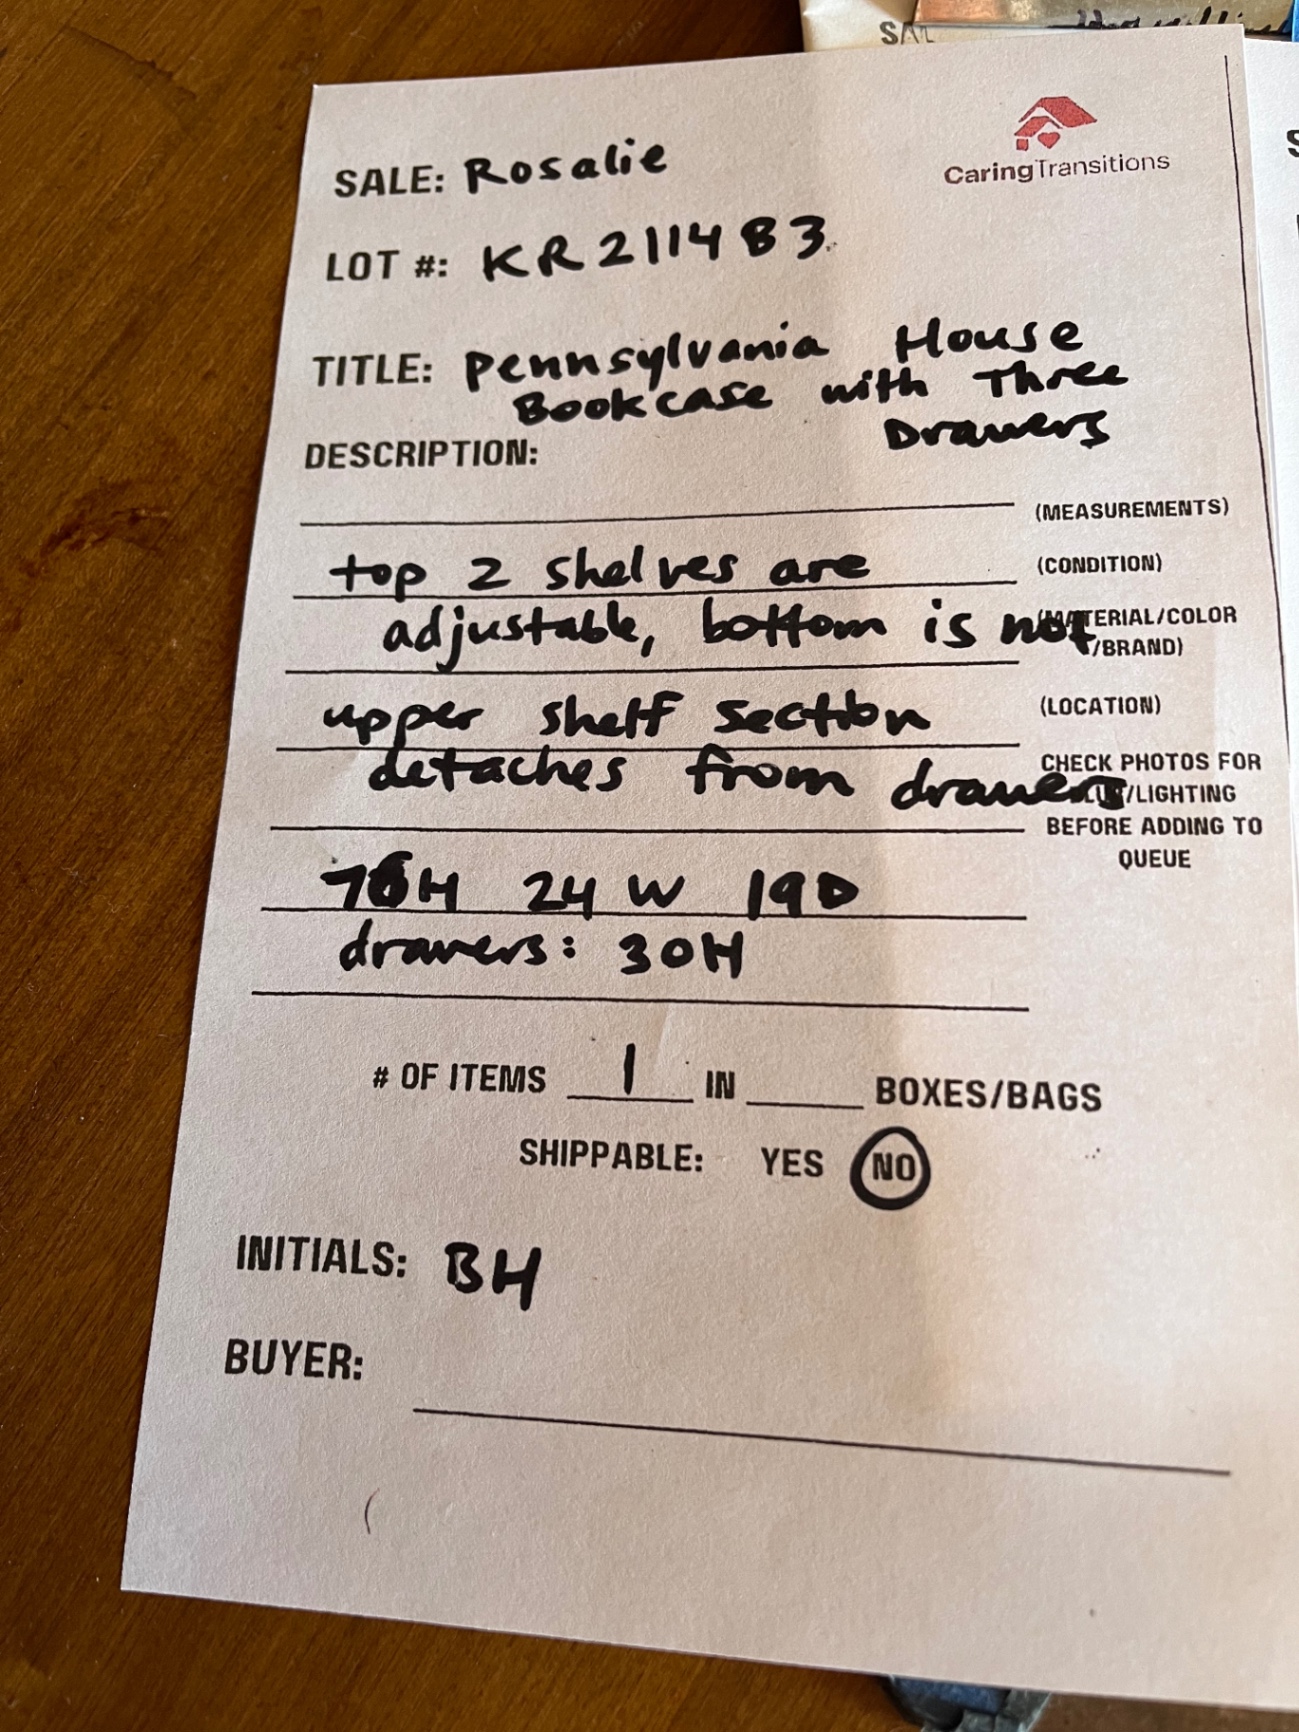 SAL
CaringTransitions
SALE: Rosalie
LOT #: KR2114B3
TITLE: Pennsylvania House
Bookcase with Three
Drawers
DESCRIPTION:
(MEASUREMENTS)
top 2 shelves are (CONDITION)
adjustable, bottom is not (MATERIAL/COLOR
/BRAND)
upper shelf section (LOCATION)
detaches from drawers CHECK PHOTOS FOR
/LIGHTING
BEFORE ADDING TO
QUEUE
76H 24W 19D
drawers: 30H
# OF ITEMS 1 IN BOXES/BAGS
SHIPPABLE: YES NO
INITIALS: BH
BUYER: